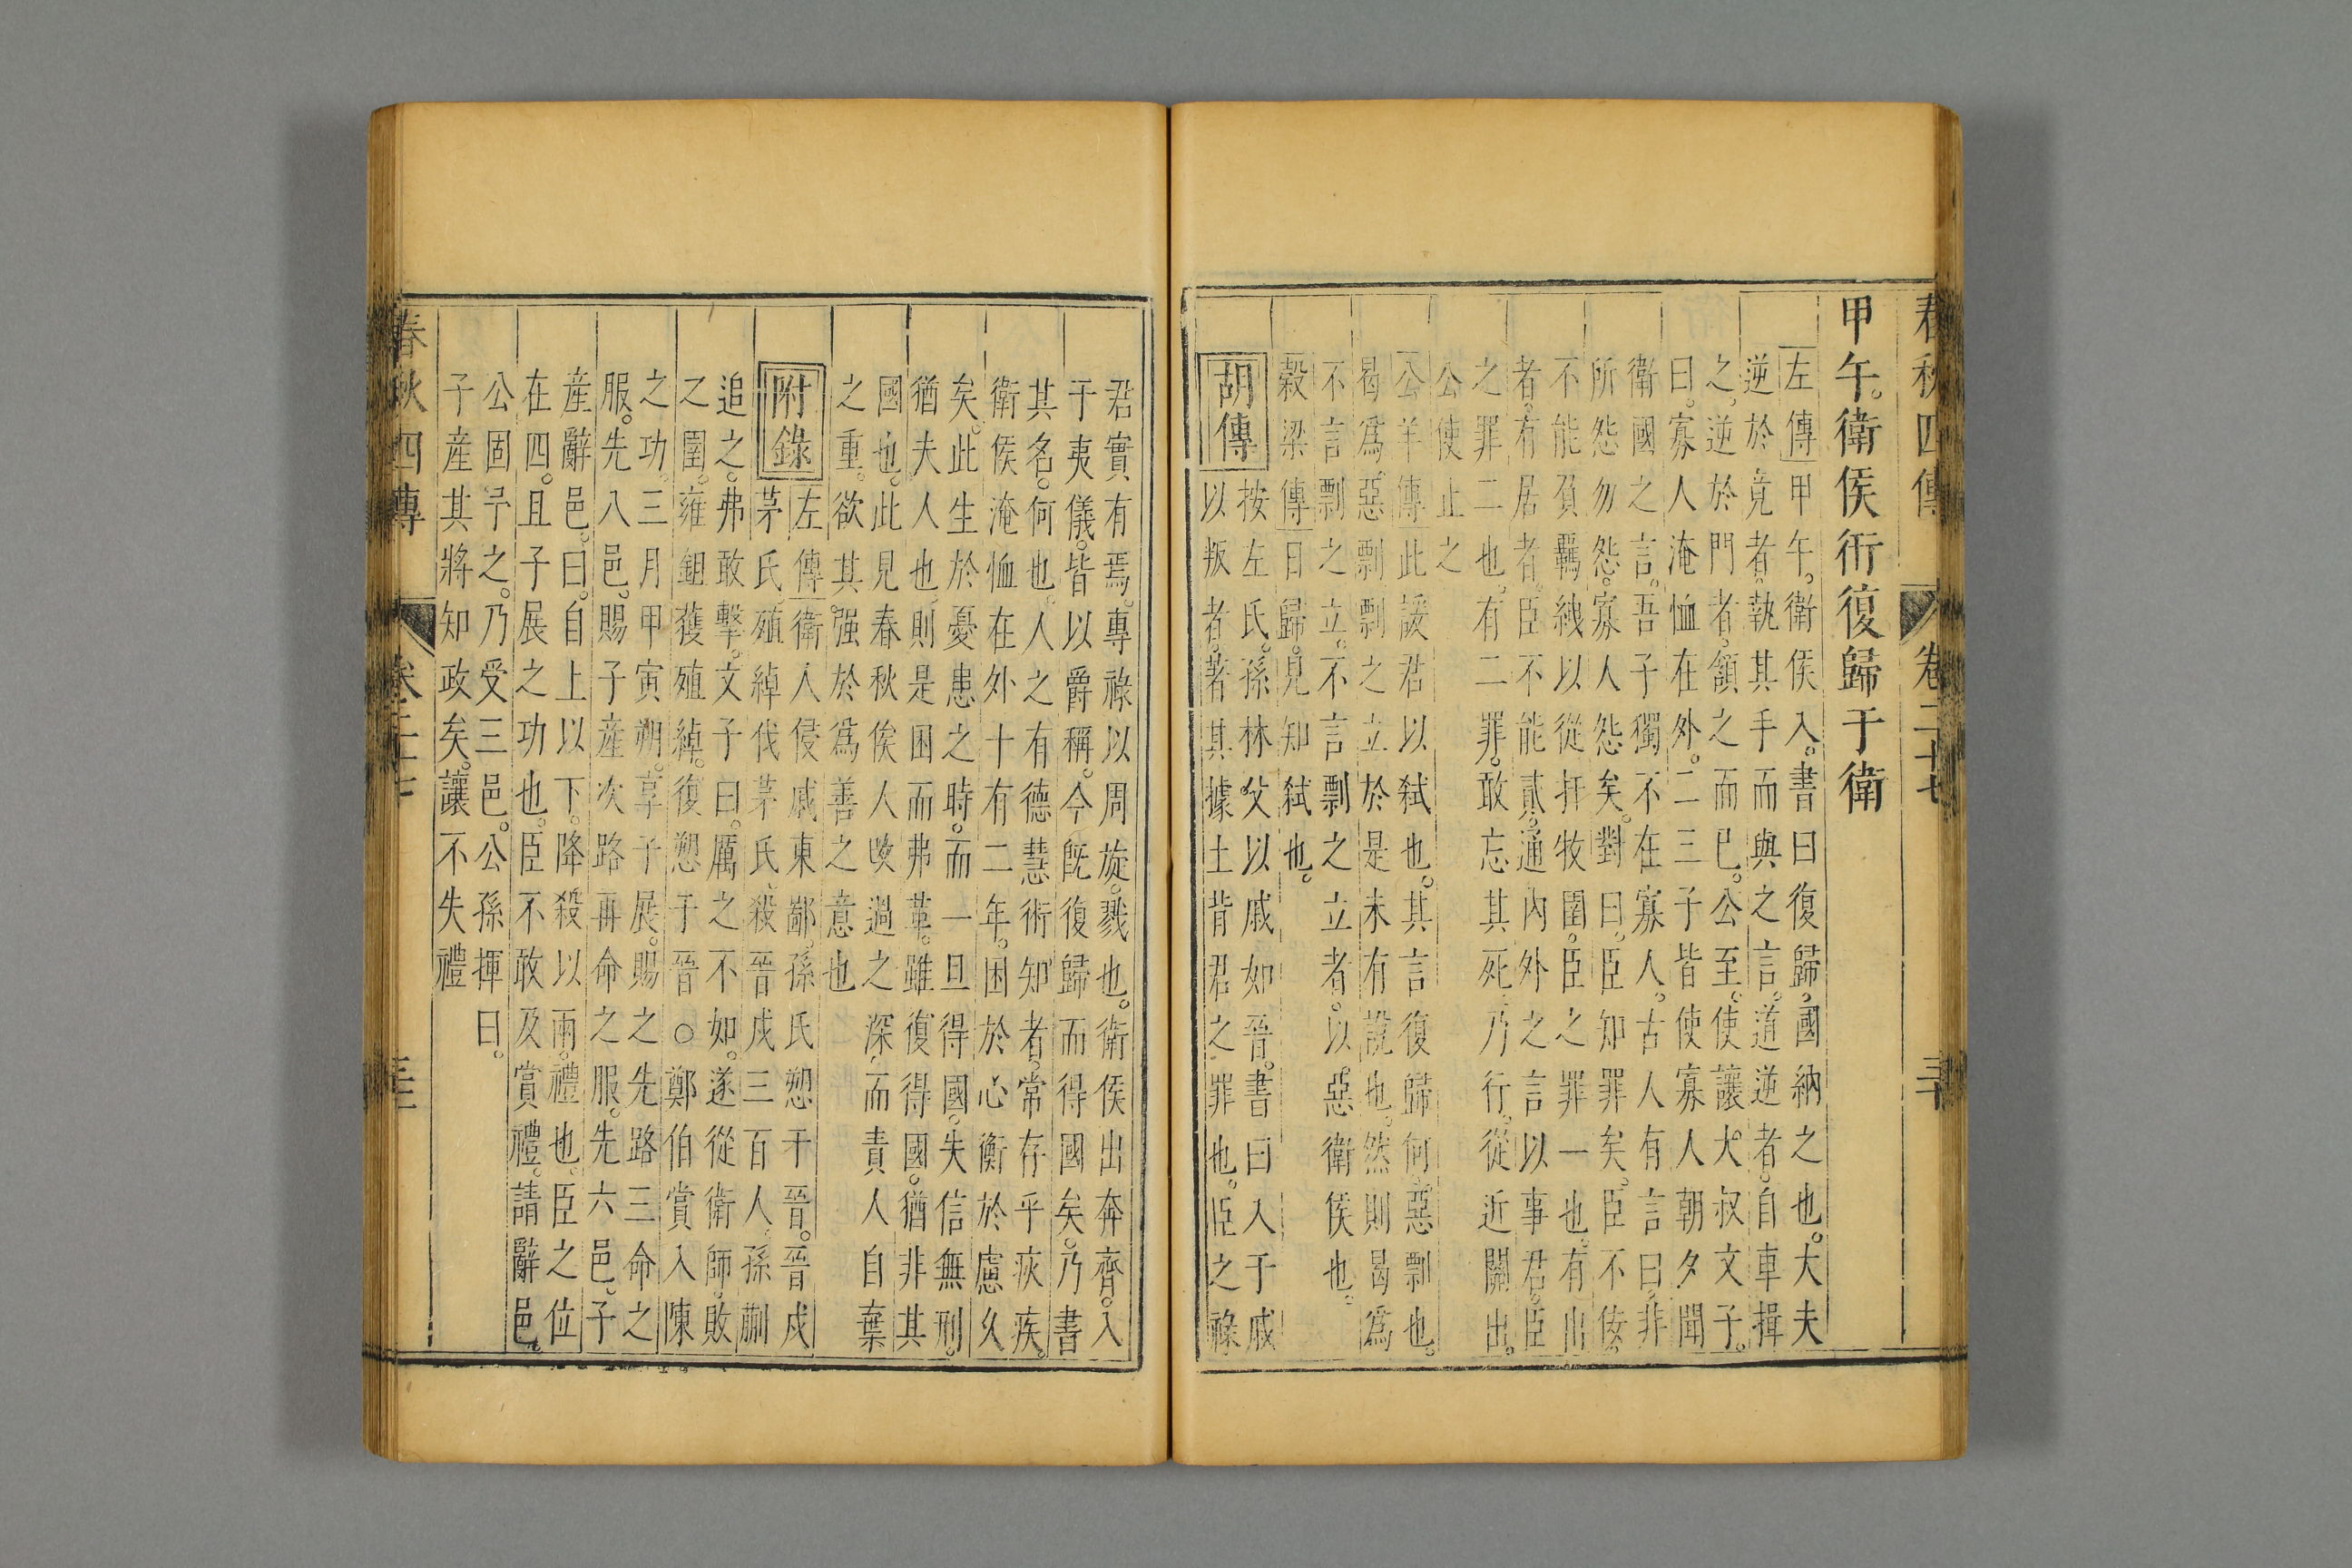 春秋四傳 卷二十七 三十
甲午。衛侯衎復歸于衛
左傳甲午。衛侯入。書曰復歸。國納之也。大夫
逆於竟者。執其手而與之言。道逆者。自車揖
之。逆於門者。頷之而已。公至。使讓大叔文子。
曰。寡人淹恤在外。二三子皆使寡人朝夕聞
衛國之言。吾子獨不在寡人。古人有言曰。非
所怨勿怨。寡人怨矣。對曰。臣知罪矣。臣不佞。
不能負羈絏以從扞牧圉。臣之罪一也。有出
者。有居者。臣不能貳。通內外之言以事君。臣
之罪二也。有二罪。敢忘其死。乃行。從近關出。
公使止之
公羊傳此諼君以弒也。其言復歸何。惡剽也。
曷為惡剽。剽之立於是未有說也。然則曷為
不言剽之立。不言剽之立者。以惡衛侯也。
穀梁傳日歸。見知弒也。
胡傳按左氏。孫林父以戚如晉。書曰入于戚
以叛者。著其據土背君之罪也。臣之祿
君實有焉。專祿以周旋。戮也。衛侯出奔齊。入
于夷儀。皆以爵稱。今既復歸而得國矣。乃書
其名。何也。人之有德慧術知者。常存乎疢疾。
衛侯淹恤在外十有二年。困於心衡於慮久
矣。此生於憂患之時。而一旦得國。失信無刑。
猶夫人也。則是困而弗革。雖復得國。猶非其
國也。此見春秋俟人改過之深。而責人自棄
之重。欲其強於為善之意也
附錄左傳衛人侵戚東鄙。孫氏愬于晉。晉戍
茅氏。殖綽伐茅氏。殺晉戍三百人。孫蒯
追之。弗敢擊。文子曰。厲之不如。遂從衛師。敗
之圉。雍鉏獲殖綽。復愬于晉○鄭伯賞入陳
之功。三月甲寅朔。享子展。賜之先路三命之
服。先八邑。賜子產次路再命之服。先六邑。子
產辭邑。曰。自上以下。降殺以兩。禮也。臣之位
在四。且子展之功也。臣不敢及賞禮。請辭邑。
公固予之。乃受三邑。公孫揮曰。
子產其將知政矣。讓不失禮
春秋四傳 卷二十七